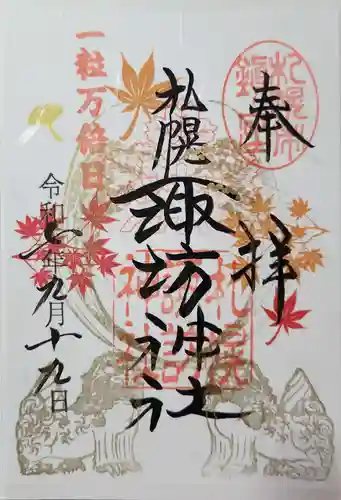 奉拝
札幌市鎮座
札幌諏訪神社
一粒万倍日
令和七年九月十九日